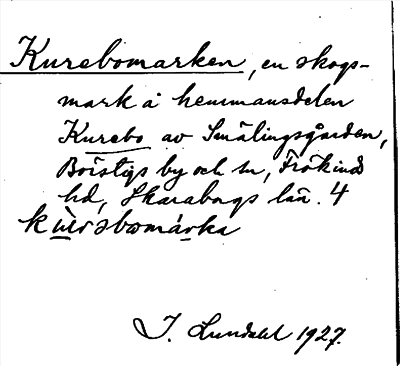 Kurebomarken, en skogs-
mark å hemmansdelen
Kurebo av Smälingsgården,
Börstigs by och sn, Frökinds
hd, Skaraborgs län. 4
I. Lundahl 1927.